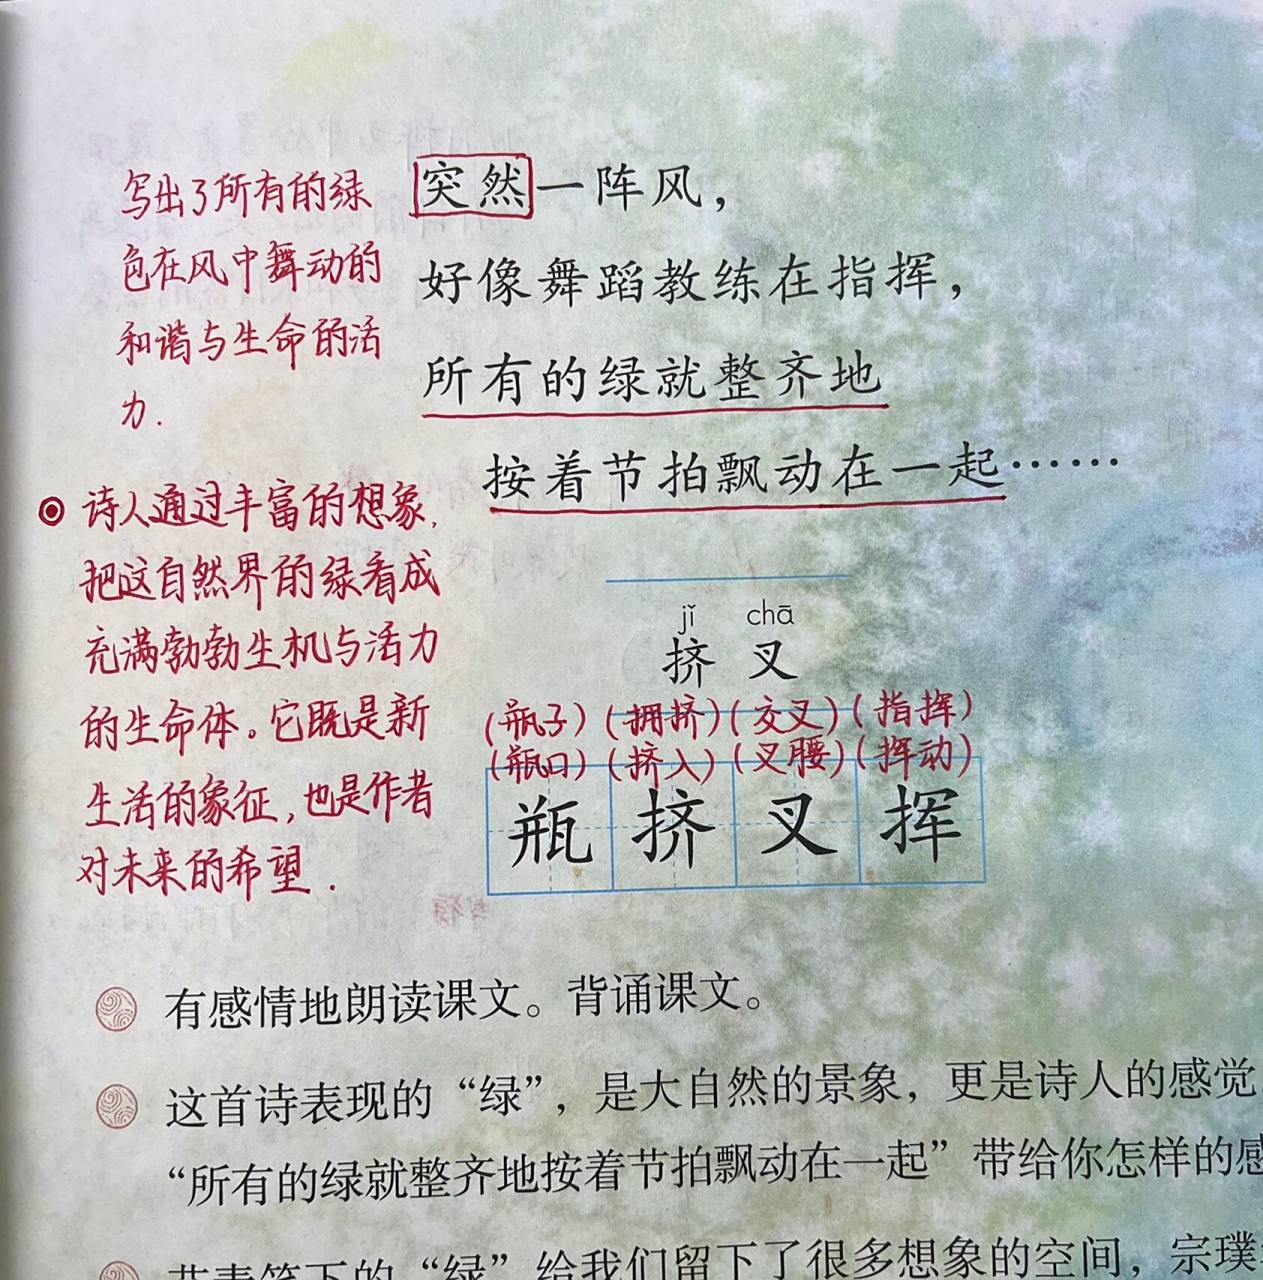 突然一阵风，
好像舞蹈教练在指挥，
所有的绿就整齐地
按着节拍飘动在一起……
写出了所有的绿
色在风中舞动的
和谐与生命的活
力.
诗人通过丰富的想象,
把这自然界的绿看成
充满勃勃生机与活力
的生命体。它既是新
生活的象征,也是作者
对未来的希望.
jǐ chā
挤 叉
(瓶子)(拥挤)(交叉)(指挥)
(瓶口)(挤入)(叉腰)(挥动)
瓶 挤 叉 挥
有感情地朗读课文。背诵课文。
这首诗表现的“绿”，是大自然的景象，更是诗人的感觉
“所有的绿就整齐地按着节拍飘动在一起”带给你怎样的感
艾青笔下的“绿”给我们留下了很多想象的空间，宗璞